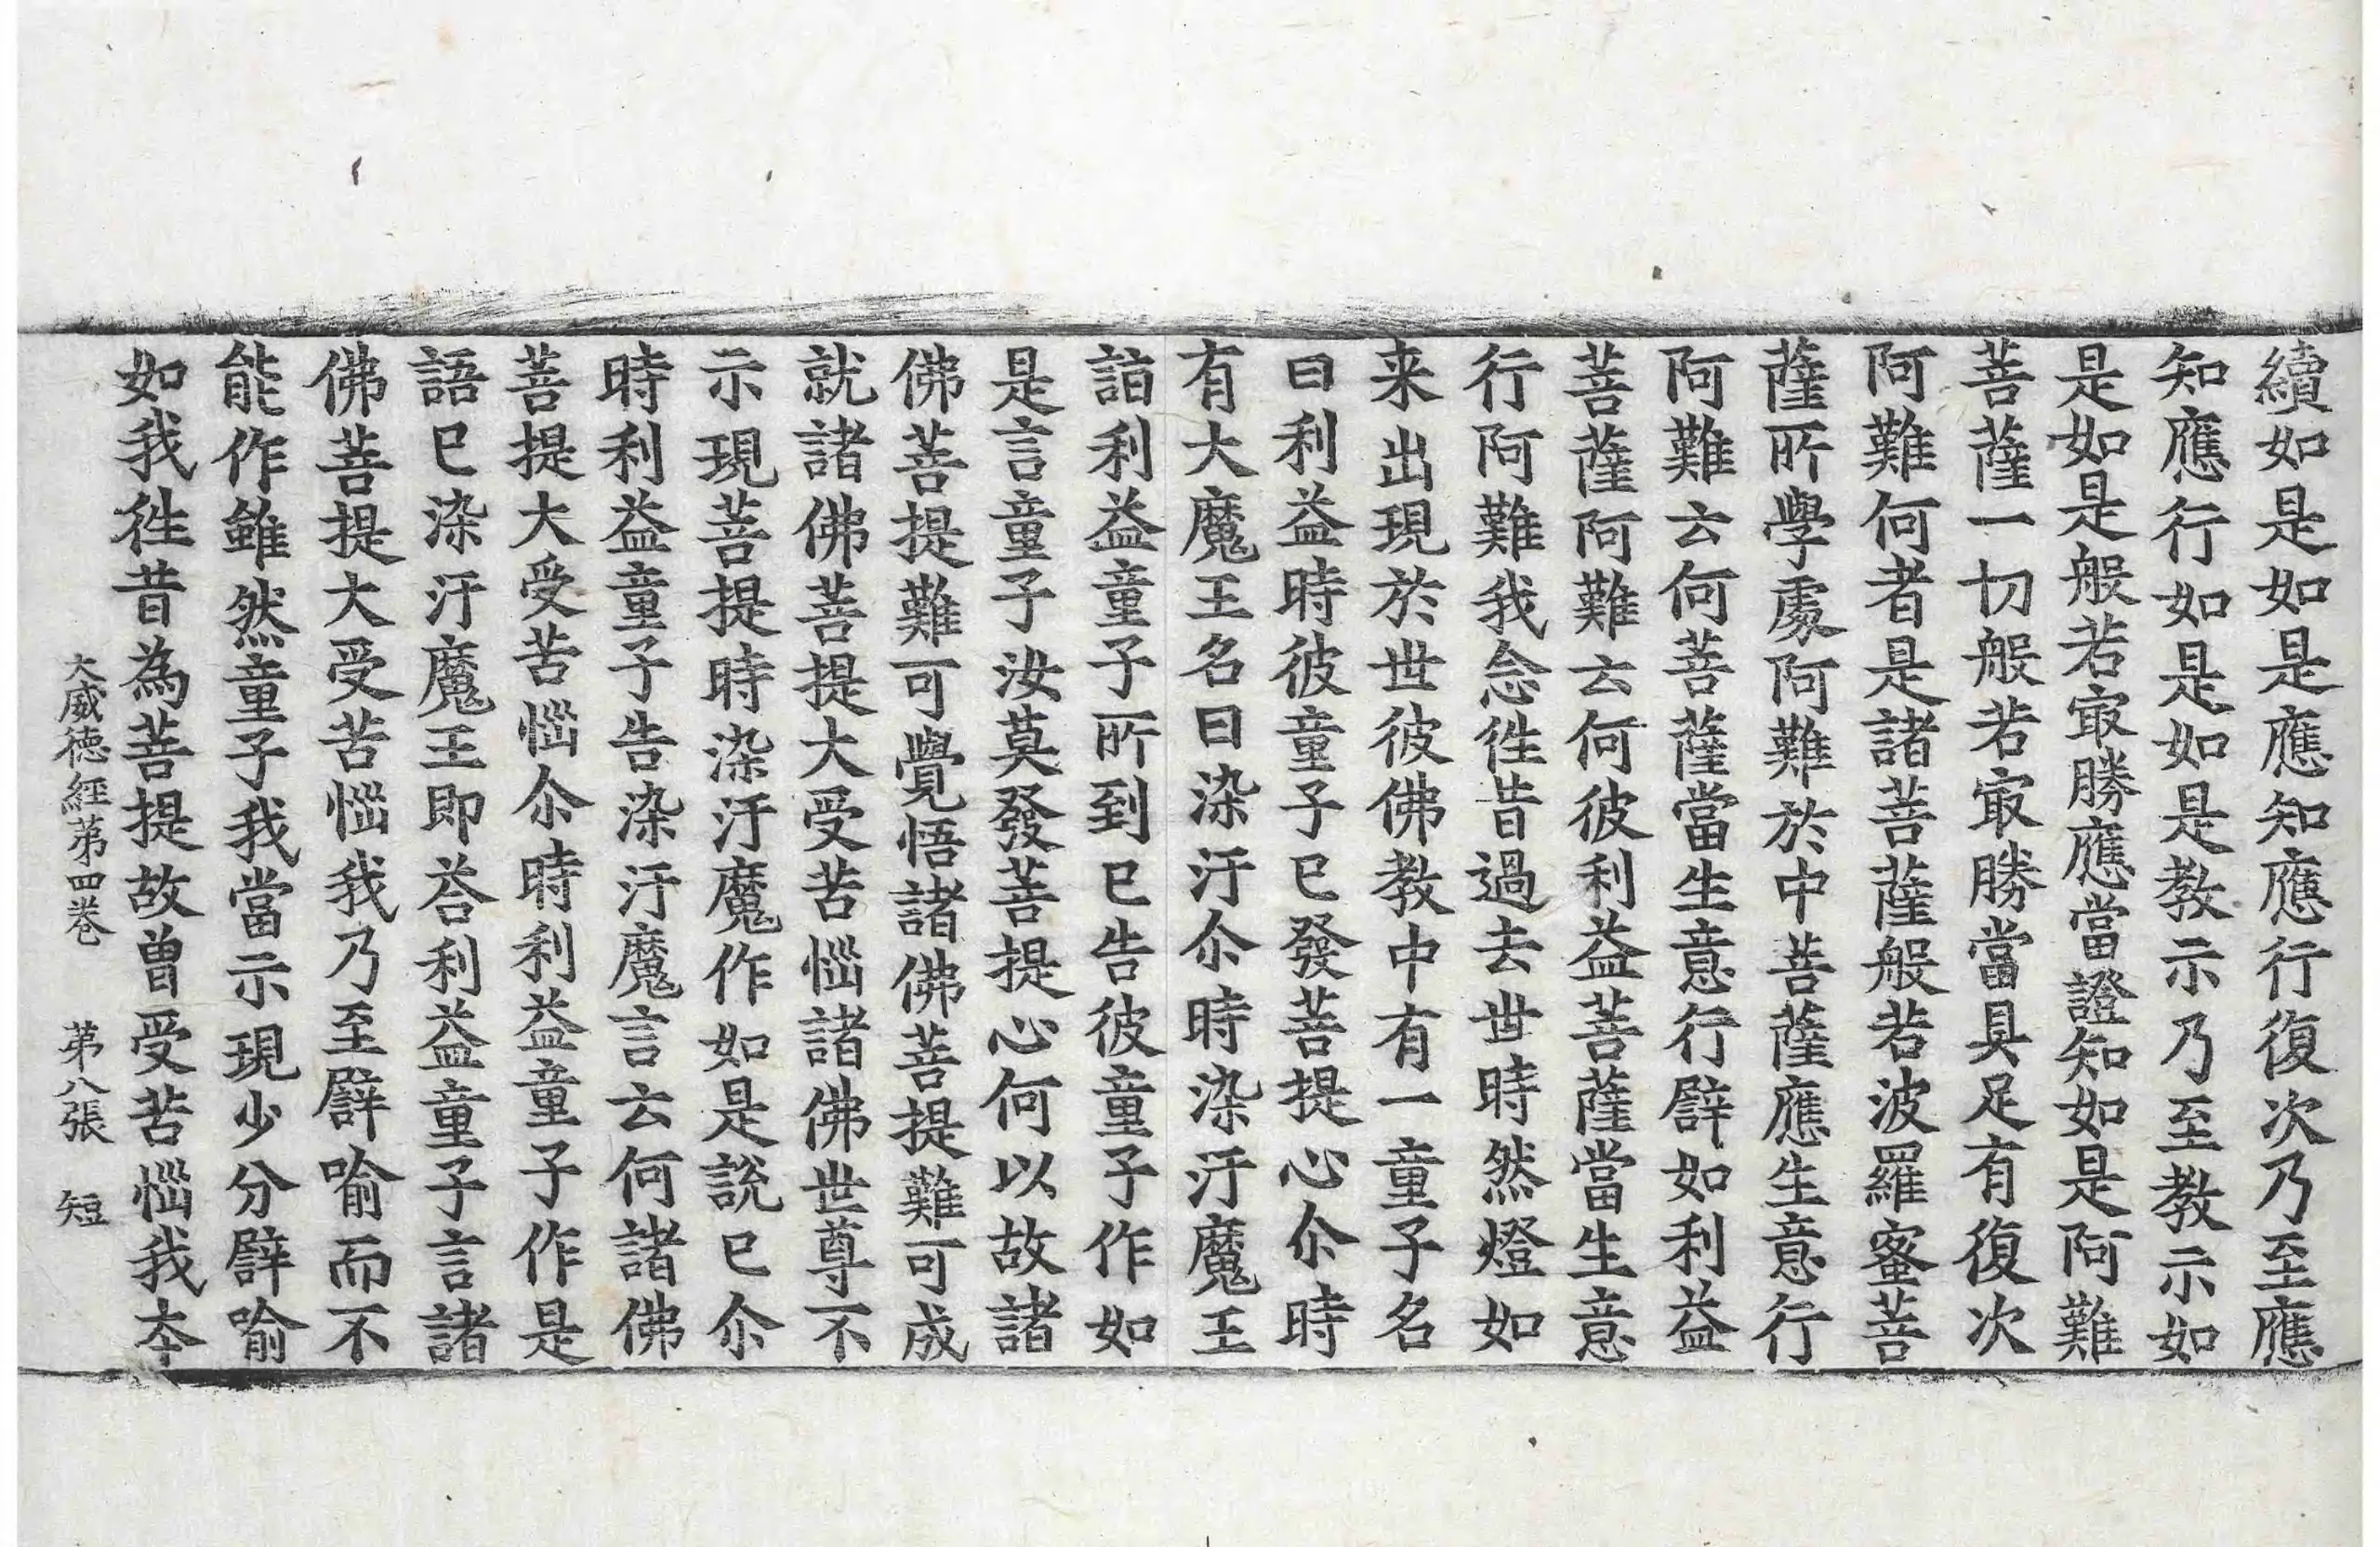 續如是如是應知應行復次乃至應
知應行如是如是教示乃至教示如
是如是般若㝡勝應當證知如是阿難
菩薩一切般若㝡勝當具足有復次
阿難何者是諸菩薩般若波羅蜜菩
薩所學處阿難於中菩薩應生意行
阿難云何菩薩當生意行譬如利益
菩薩阿難云何彼利益菩薩當生意
行阿難我念徃昔過去世時然燈如
来出現於世彼佛教中有一童子名
曰利益時彼童子已發菩提心尒時
有大魔王名曰染汙尒時染汙魔王
詣利益童子所到已告彼童子作如
是言童子汝莫發菩提心何以故諸
佛菩提難可覺悟諸佛菩提難可成
就諸佛菩提大受苦惱諸佛世尊不
示現菩提時染汙魔作如是說已尒
時利益童子告染汙魔言云何諸佛
菩提大受苦惱尒時利益童子作是
語已染汙魔王即荅利益童子言諸
佛菩提大受苦惱我乃至譬喻而不
能作雖然童子我當示現少分譬喻
如我徃昔為菩提故曾受苦惱我夲
大威徳經苐四卷 苐八張 短